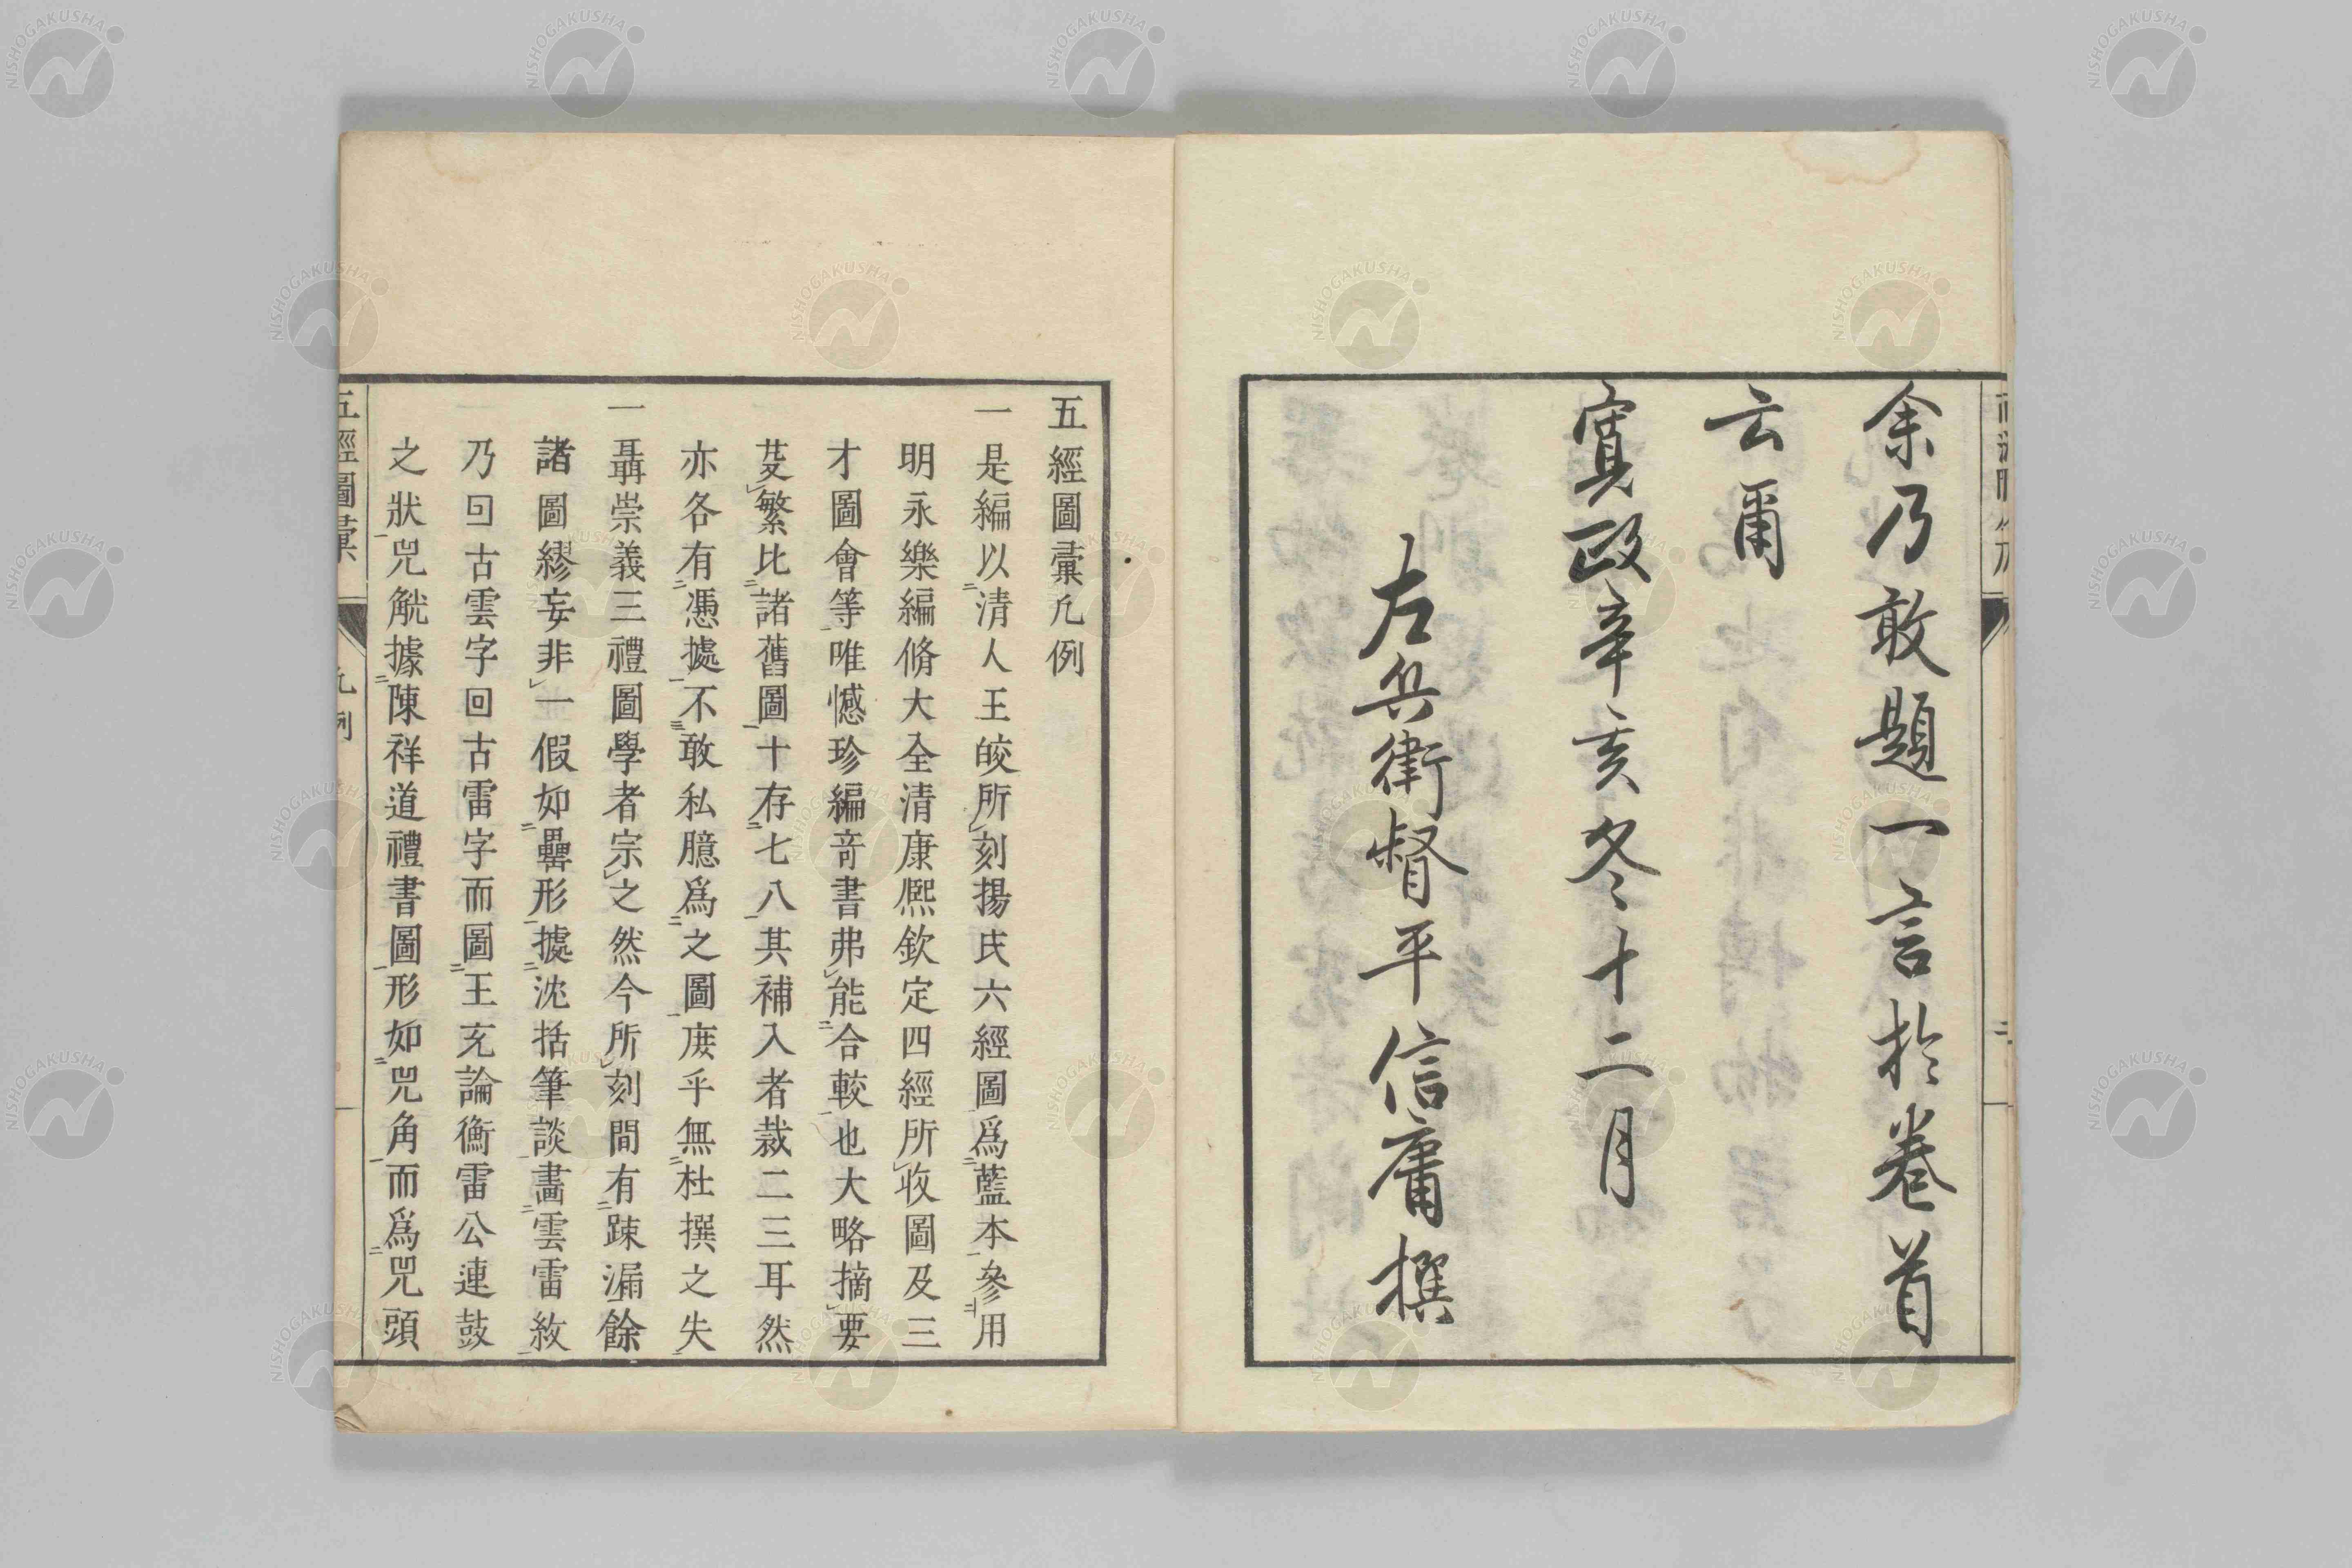 余乃敢題一言於卷首
云爾
寬政辛亥冬十二月
左兵衛督平信庸撰
五經圖彙凡例
一是編以清人王皎所刻揚氏六經圖爲藍本參用
明永樂編脩大全清康熙欽定四經所收圖及三
才圖會等唯憾珍編竒書弗能合較也大略摘要
芟繁比諸舊圖十存七八其補入者裁二三耳然
亦各有憑據不敢私臆爲之圖庶乎無杜撰之失
一聶崇義三禮圖學者宗之然今所刻間有踈漏餘
諸圖繆妄非一假如罍形據沈括筆談畵雲雷紋
乃回古雲字回古雷字而圖王充論衡雷公連鼓
之狀兕觥據陳祥道禮書圖形如兕角而爲兕頭
五經圖彙
凡例
NISHOGAKUSHA